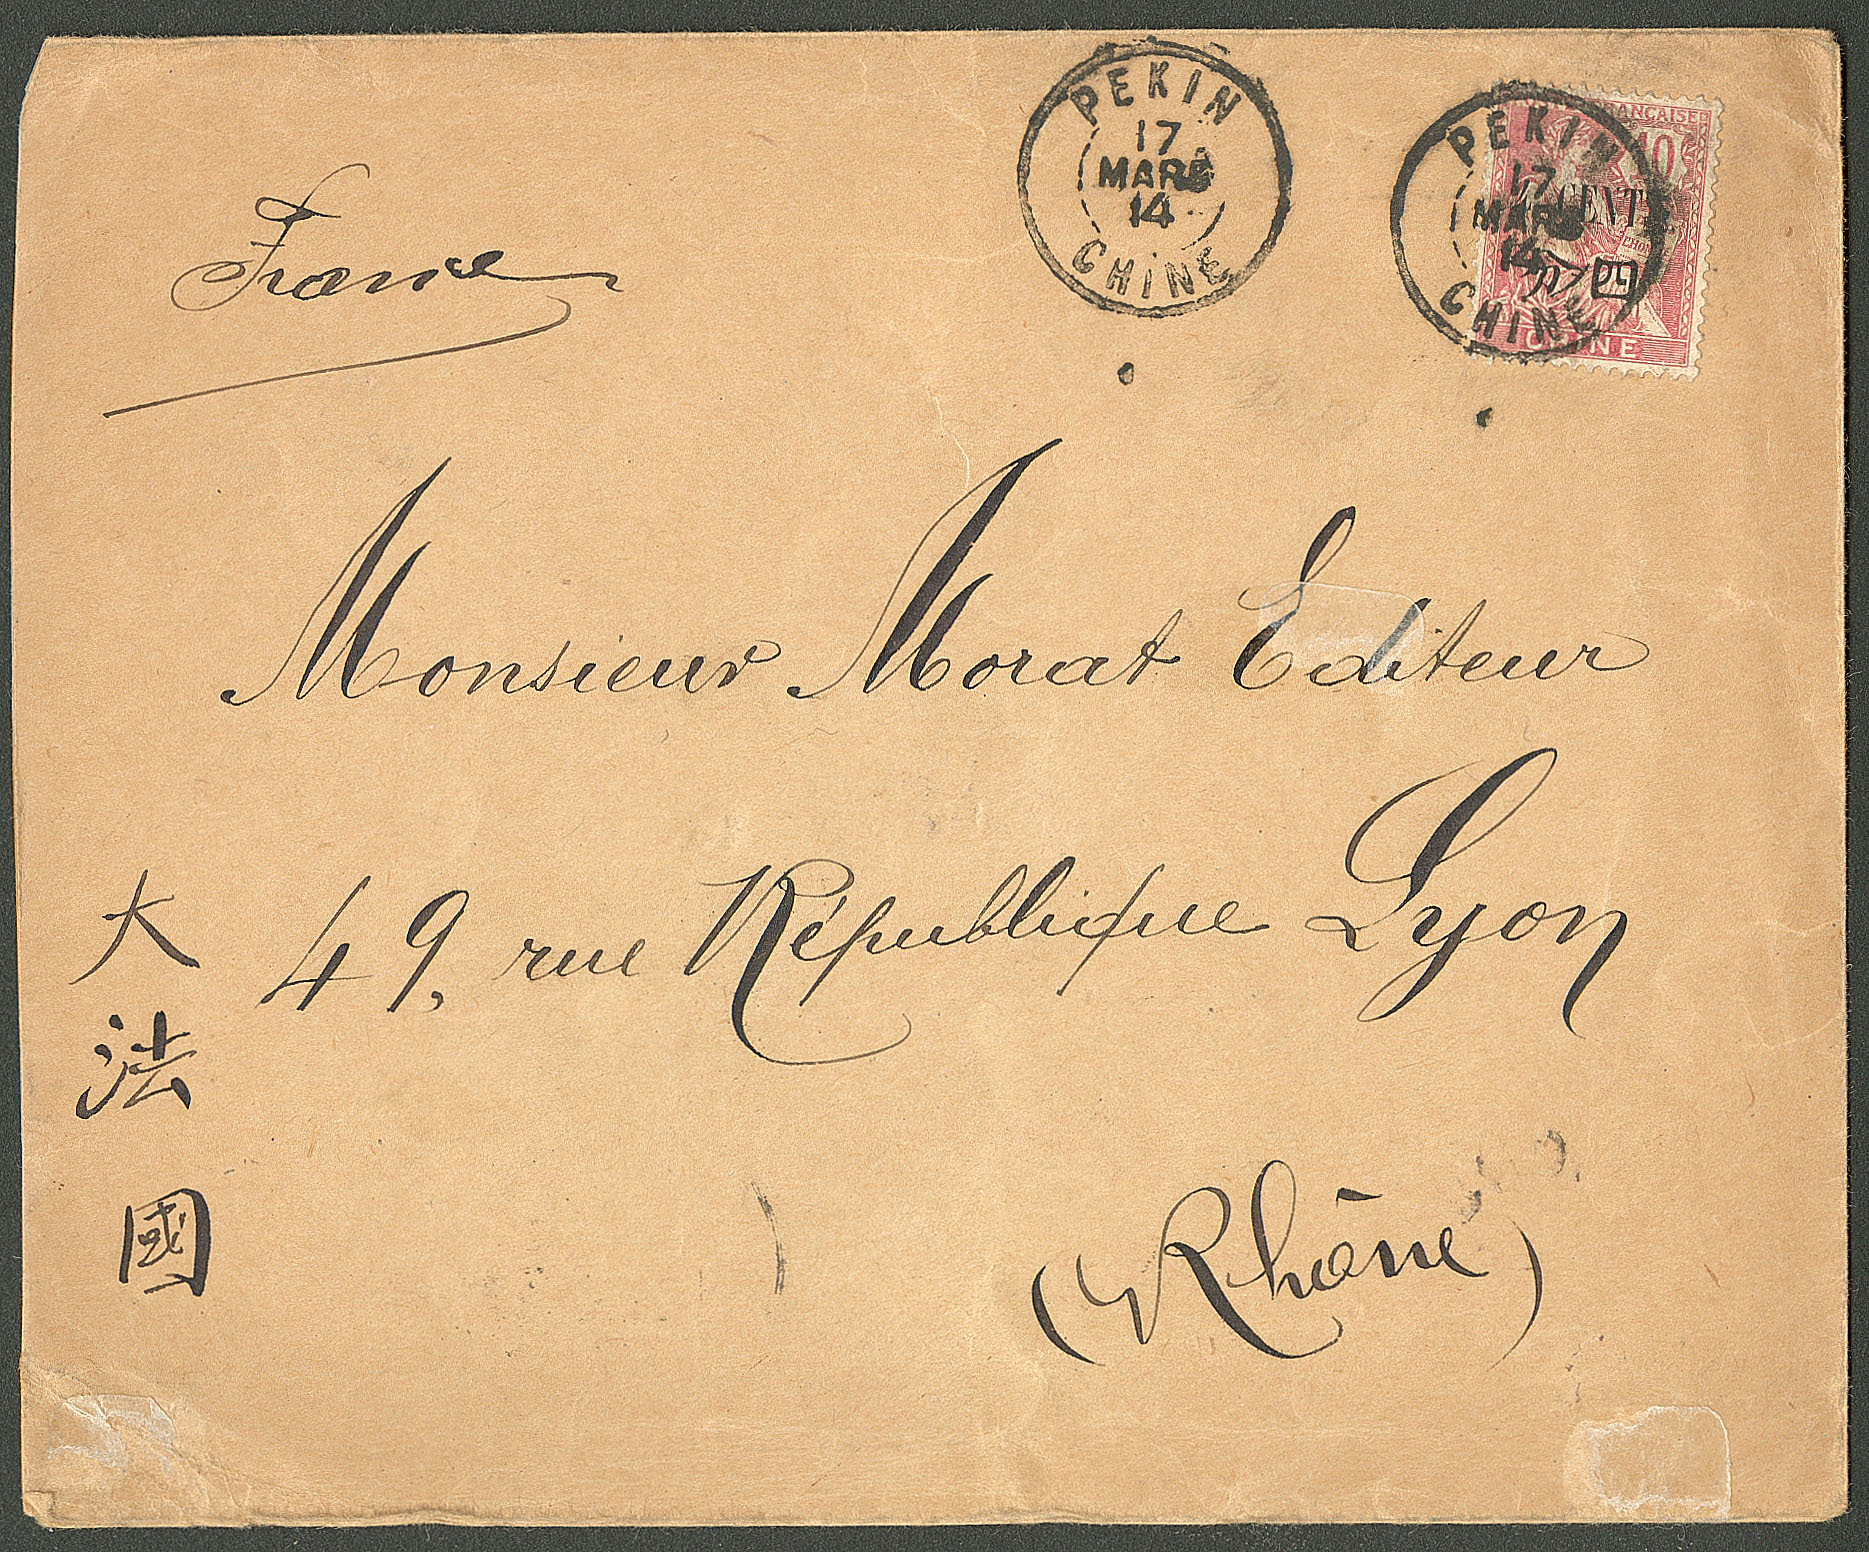 PEKIN
17
MARS
14
CHINE
PEKIN
17
MARS
14
CHINE
FRANÇAISE
10
CENTS
分四
CHINE
France
Monsieur Morat Editeur
49, rue République Lyon
(Rhône)
大法國